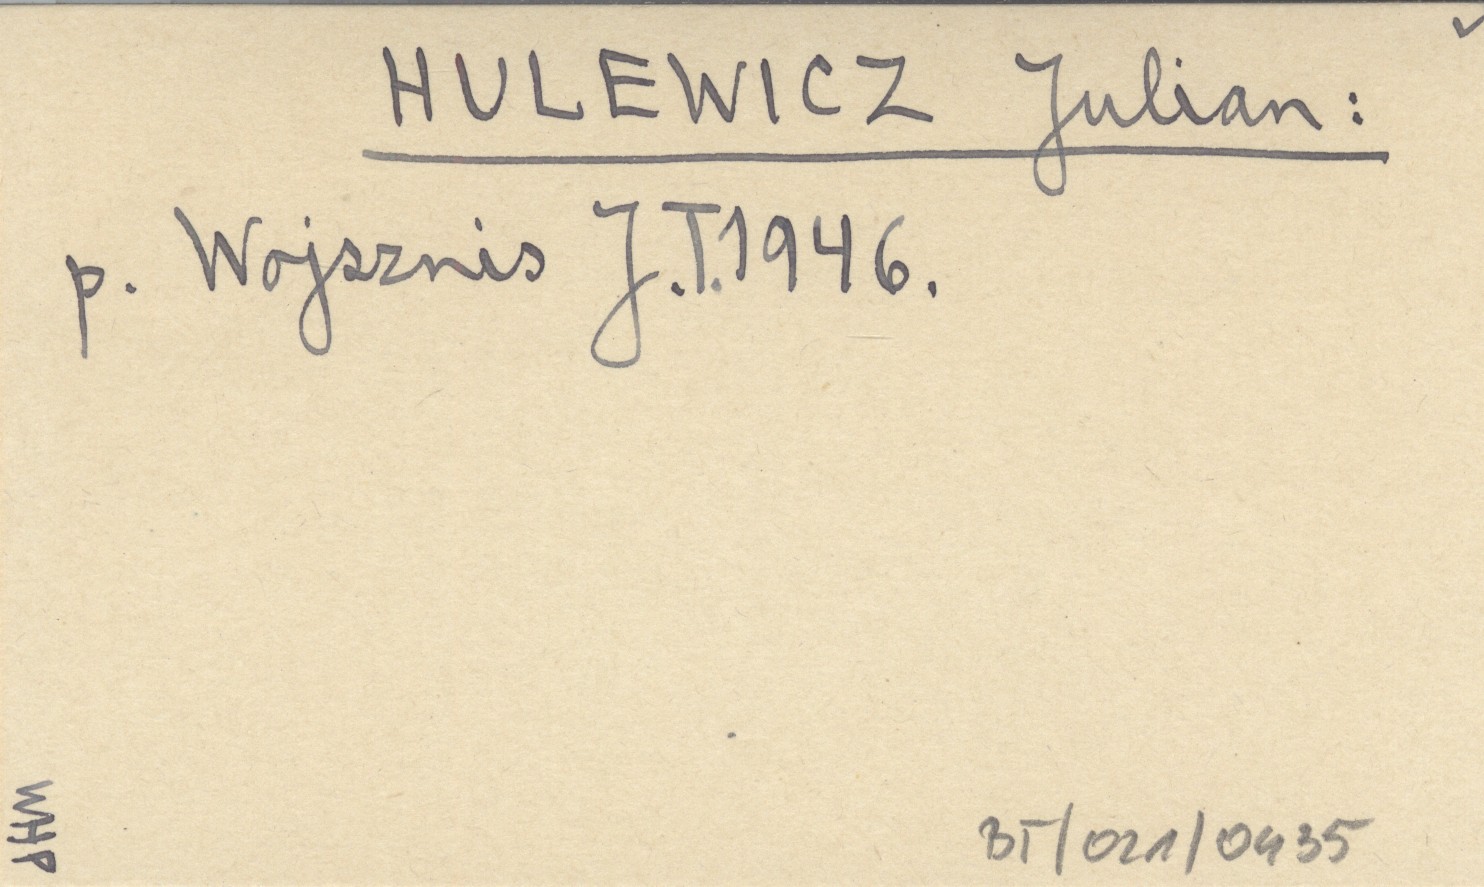 HULEWICZ Julian:
p. Wojsznis J.T.1946.
WHP
BT/021/0435